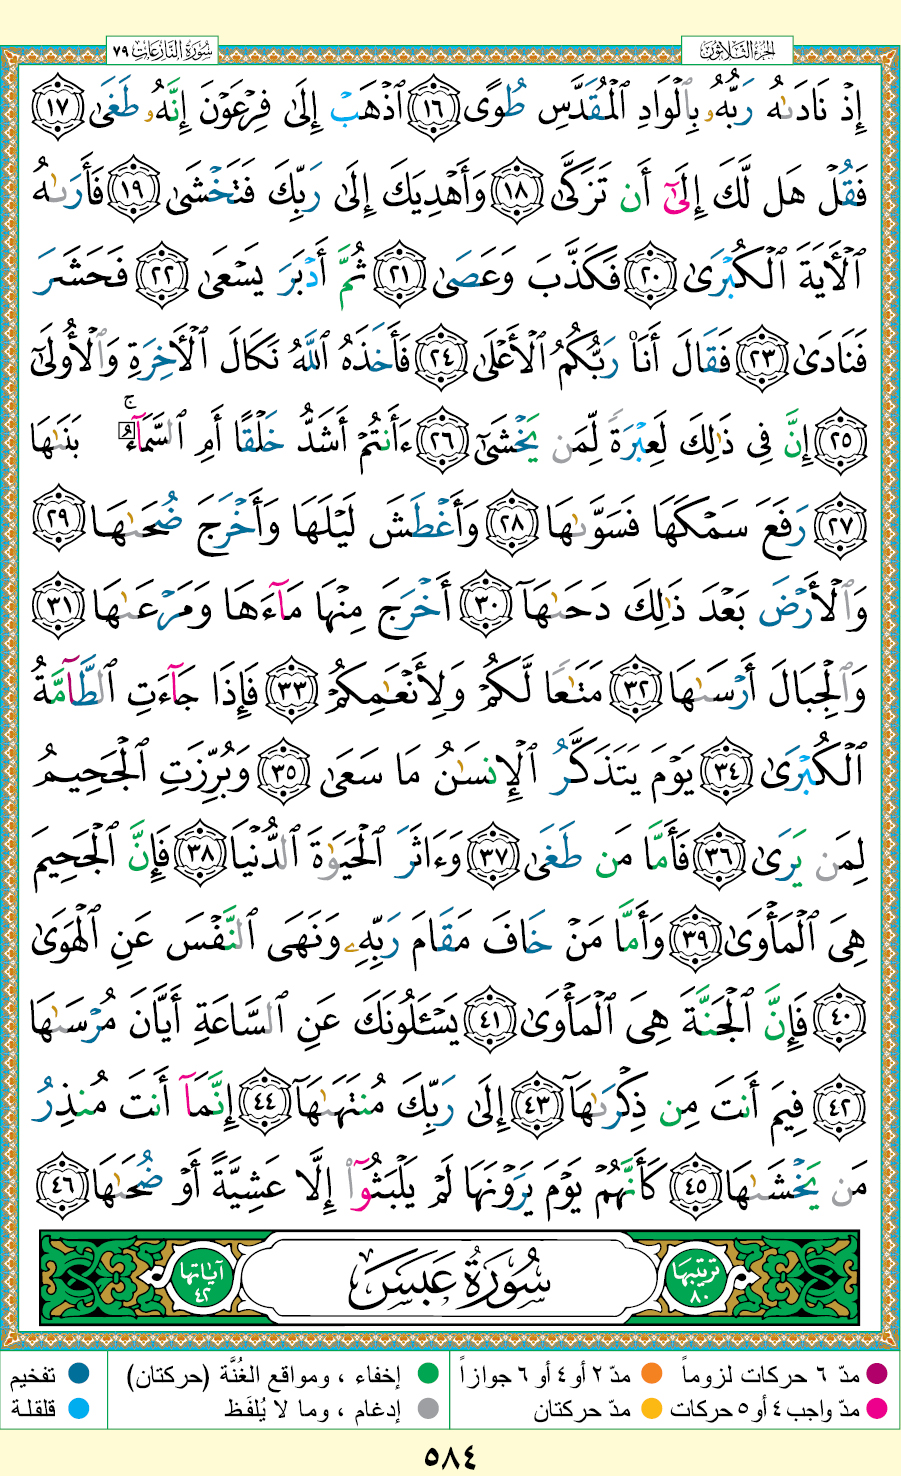 سُورَةُ النَّازِعَاتِ ٧٩
الجُزءُ الثَّلَاثُونَ
إِذۡ نَادَىٰهُ رَبُّهُۥ بِٱلۡوَادِ ٱلۡمُقَدَّسِ طُوًى ١٦ ٱذۡهَبۡ إِلَىٰ فِرۡعَوۡنَ إِنَّهُۥ طَغَىٰ ١٧
فَقُلۡ هَل لَّكَ إِلَىٰٓ أَن تَزَكَّىٰ ١٨ وَأَهۡدِيَكَ إِلَىٰ رَبِّكَ فَتَخۡشَىٰ ١٩ فَأَرَىٰهُ
ٱلۡأٓيَةَ ٱلۡكُبۡرَىٰ ٢٠ فَكَذَّبَ وَعَصَىٰ ٢١ ثُمَّ أَدۡبَرَ يَسۡعَىٰ ٢٢ فَحَشَرَ
فَنَادَىٰ ٢٣ فَقَالَ أَنَا۠ رَبُّكُمُ ٱلۡأَعۡلَىٰ ٢٤ فَأَخَذَهُ ٱللَّهُ نَكَالَ ٱلۡأٓخِرَةِ وَٱلۡأُولَىٰٓ
٢٥ إِنَّ فِي ذَٰلِكَ لَعِبۡرَةٗ لِّمَن يَخۡشَىٰٓ ٢٦ ءَأَنتُمۡ أَشَدُّ خَلۡقًا أَمِ ٱلسَّمَآءُۚ بَنَىٰهَا
٢٧ رَفَعَ سَمۡكَهَا فَسَوَّىٰهَا ٢٨ وَأَغۡطَشَ لَيۡلَهَا وَأَخۡرَجَ ضُحَىٰهَا ٢٩
وَٱلۡأَرۡضَ بَعۡدَ ذَٰلِكَ دَحَىٰهَآ ٣٠ أَخۡرَجَ مِنۡهَا مَآءَهَا وَمَرۡعَىٰهَا ٣١
وَٱلۡجِبَالَ أَرۡسَىٰهَا ٣٢ مَتَٰعٗا لَّكُمۡ وَلِأَنۡعَٰمِكُمۡ ٣٣ فَإِذَا جَآءَتِ ٱلطَّآمَّةُ
ٱلۡكُبۡرَىٰ ٣٤ يَوۡمَ يَتَذَكَّرُ ٱلۡإِنسَٰنُ مَا سَعَىٰ ٣٥ وَبُرِّزَتِ ٱلۡجَحِيمُ
لِمَن يَرَىٰ ٣٦ فَأَمَّا مَن طَغَىٰ ٣٧ وَءَاثَرَ ٱلۡحَيَوٰةَ ٱلدُّنۡيَا ٣٨ فَإِنَّ ٱلۡجَحِيمَ
هِيَ ٱلۡمَأۡوَىٰ ٣٩ وَأَمَّا مَنۡ خَافَ مَقَامَ رَبِّهِۦ وَنَهَى ٱلنَّفۡسَ عَنِ ٱلۡهَوَىٰ
٤٠ فَإِنَّ ٱلۡجَنَّةَ هِيَ ٱلۡمَأۡوَىٰ ٤١ يَسۡـَٔلُونَكَ عَنِ ٱلسَّاعَةِ أَيَّانَ مُرۡسَىٰهَا
٤٢ فِيمَ أَنتَ مِن ذِكۡرَىٰهَآ ٤٣ إِلَىٰ رَبِّكَ مُنتَهَىٰهَآ ٤٤ إِنَّمَآ أَنتَ مُنذِرُ
مَن يَخۡشَىٰهَا ٤٥ كَأَنَّهُمۡ يَوۡمَ يَرَوۡنَهَا لَمۡ يَلۡبَثُوٓاْ إِلَّا عَشِيَّةً أَوۡ ضُحَىٰهَا ٤٦
ترتيبها ٨٠
سُورَةُ عَبَسَ
آياتها ٤٢
مدّ ٦ حركات لزوماً
مدّ ٢ أو ٤ أو ٦ جوازاً
إخفاء ، ومواقع الغُنَّة (حركتان)
تفخيم
مدّ واجب ٤ أو ٥ حركات
مدّ حركتان
إدغام ، وما لا يُلفَظ
قلقلة
٥٨٤